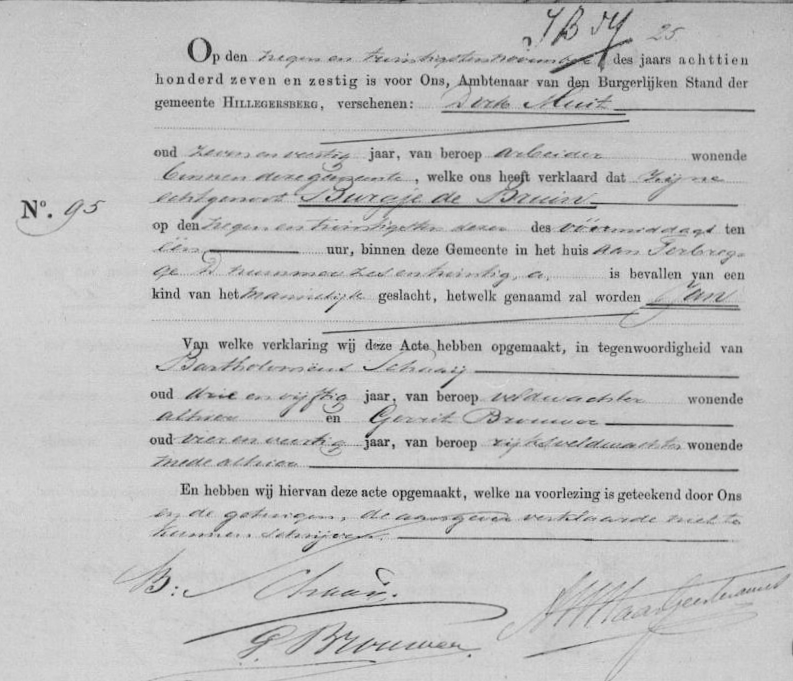 25
Op den negen en twintigsten november des jaars achttien
honderd zeven en zestig is voor Ons, Ambtenaar van den Burgerlijken Stand der
gemeente HILLEGERSBERG, verschenen: Dirk Muit
oud zeven en veertig jaar, van beroep arbeider wonende
binnen deze gemeente, welke ons heeft verklaard dat zijne
echtgenoot Burgje de Bruin
No. 95
op den negen en twintigsten dezer des vóórmiddags ten
één uur, binnen deze Gemeente in het huis aan Terbreg-
ge D nummer zes en twintig, a. is bevallen van een
kind van het mannelijk geslacht, hetwelk genaamd zal worden Jan
Van welke verklaring wij deze Acte hebben opgemaakt, in tegenwoordigheid van
Bartholomeus Schaaij
oud drie en vijftig jaar, van beroep veldwachter wonende
alhier en Gerrit Brouwer
oud vier en veertig jaar, van beroep rijksveldwachter wonende
mede alhier
En hebben wij hiervan deze acte opgemaakt, welke na voorlezing is geteekend door Ons
en de getuigen, de aangever verklaarde niet te
kunnen schrijven.
B: Schaaij.
G Brouwer.